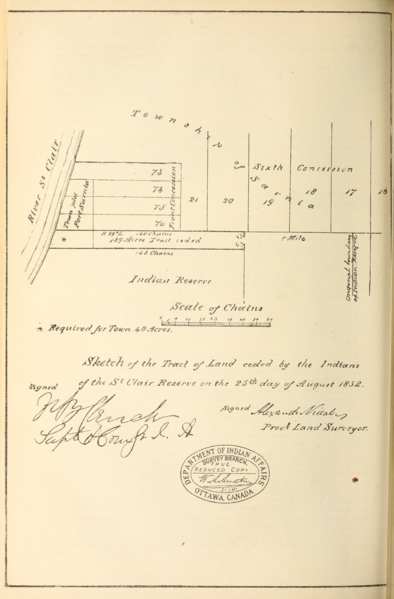 Township of Sarnia
River St Clair
Town plot
Port Sarnia
73
74
75
76
Front Concession
21
20
Sixth Concession
19
18
17
16
160 Chains
189 Acres Tract ceded
163 Chains
1 Mile
Original boundary
of Indian Reserve
Indian Reserve
Scale of Chains
Required for Town 40 Acres.
Sketch of the Tract of Land ceded by the Indians
of the St Clair Reserve on the 25th day of August 1852.
Signed
Supt
I. A
Signed
Provl Land Surveyor.
DEPARTMENT OF INDIAN AFFAIRS
SURVEY BRANCH,
TRUE
REDUCED COPY
OTTAWA, CANADA